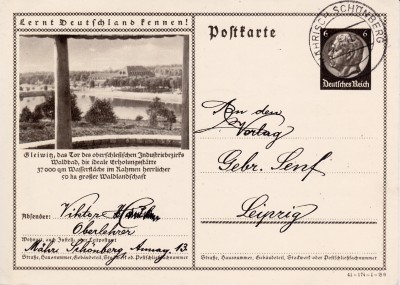 Lernt Deutschland kennen!
Gleiwitz, das Tor des oberschlesischen Industriebezirks
Waldbad, die ideale Erholungsstätte
37 000 qm Wasserfläche im Rahmen herrlicher
50 ha großer Waldlandschaft
Absender: Viktor
Oberlehrer
Wohnort, auch Zustell- oder Leitpostamt
Mähr. Schönberg, 13
Straße, Hausnummer, Gebäudeteil, Stockwerk od. Postschließfachnummer
Postkarte
MÄHRISCH SCHÖNBERG
6 6
Deutsches Reich
An den
Verlag
Gebr. Senf
Leipzig
Straße, Hausnummer, Gebäudeteil, Stockwerk oder Postschließfachnummer